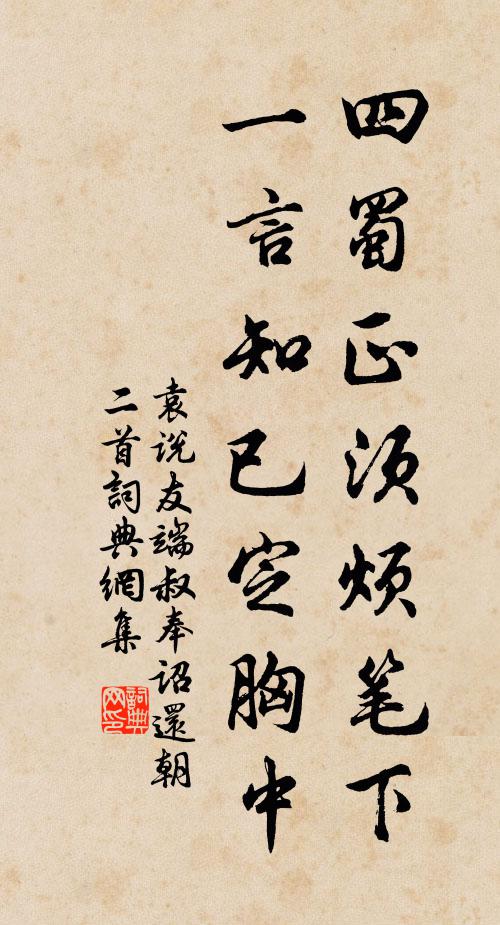 四蜀正须烦笔下
一言知已定胸中
袁说友端叔奉诏還朝
二首詞典網集
詞典網印